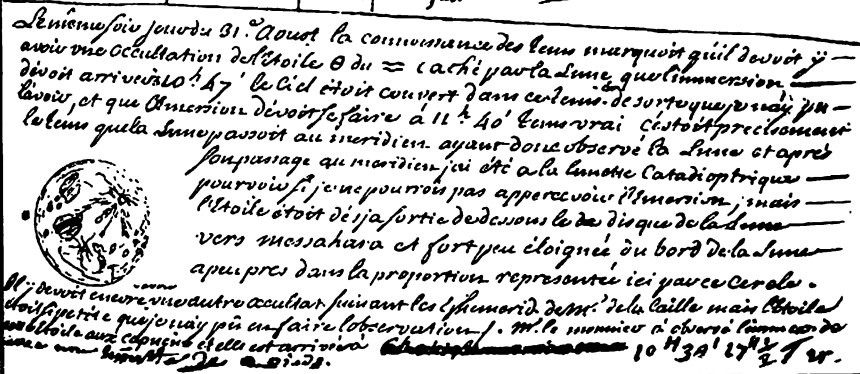 Le même soir jour du 31.e Aoust la connoissance des tems marquoit qu'il devoit ÿ
avoir une occultation de l'étoile θ du ♒ caché par la Lune, que l'immersion
dévoit arriver à 10h 47' le Ciel étoit couvert dans ce tems. de sorte que je n'aÿ pu
l'avoir, et que l'Emersion dévoit se faire à 11h 40' tems vrai c'éstoit précisément
le tems que la Lune passoit au meridien ayant donc observé la Lune et après
son passage au meridien j'ai été a la lunette Catadioptrique
pour voir si je ne pourrois pas appercevoir l'Emersion, mais
l'Etoile étoit désja sortie de dessous le disque de la Lune
vers messahara et fort peu éloignée du bord de la Lune
apeu pres dans la proportion representée ici par ce Cercle.
Il ÿ devoit encore une autre occultat suivant les Ephemerid. de Mr. de la Caille mais l'Etoile
étoit si petite que je n'aÿ pû en faire l'observation. Mr. le monnier a observé l'immers. de
l'Etoile aux capucins et elle est arrivée à 10H 3A' 27"½ T vr.
avec une de pieds.